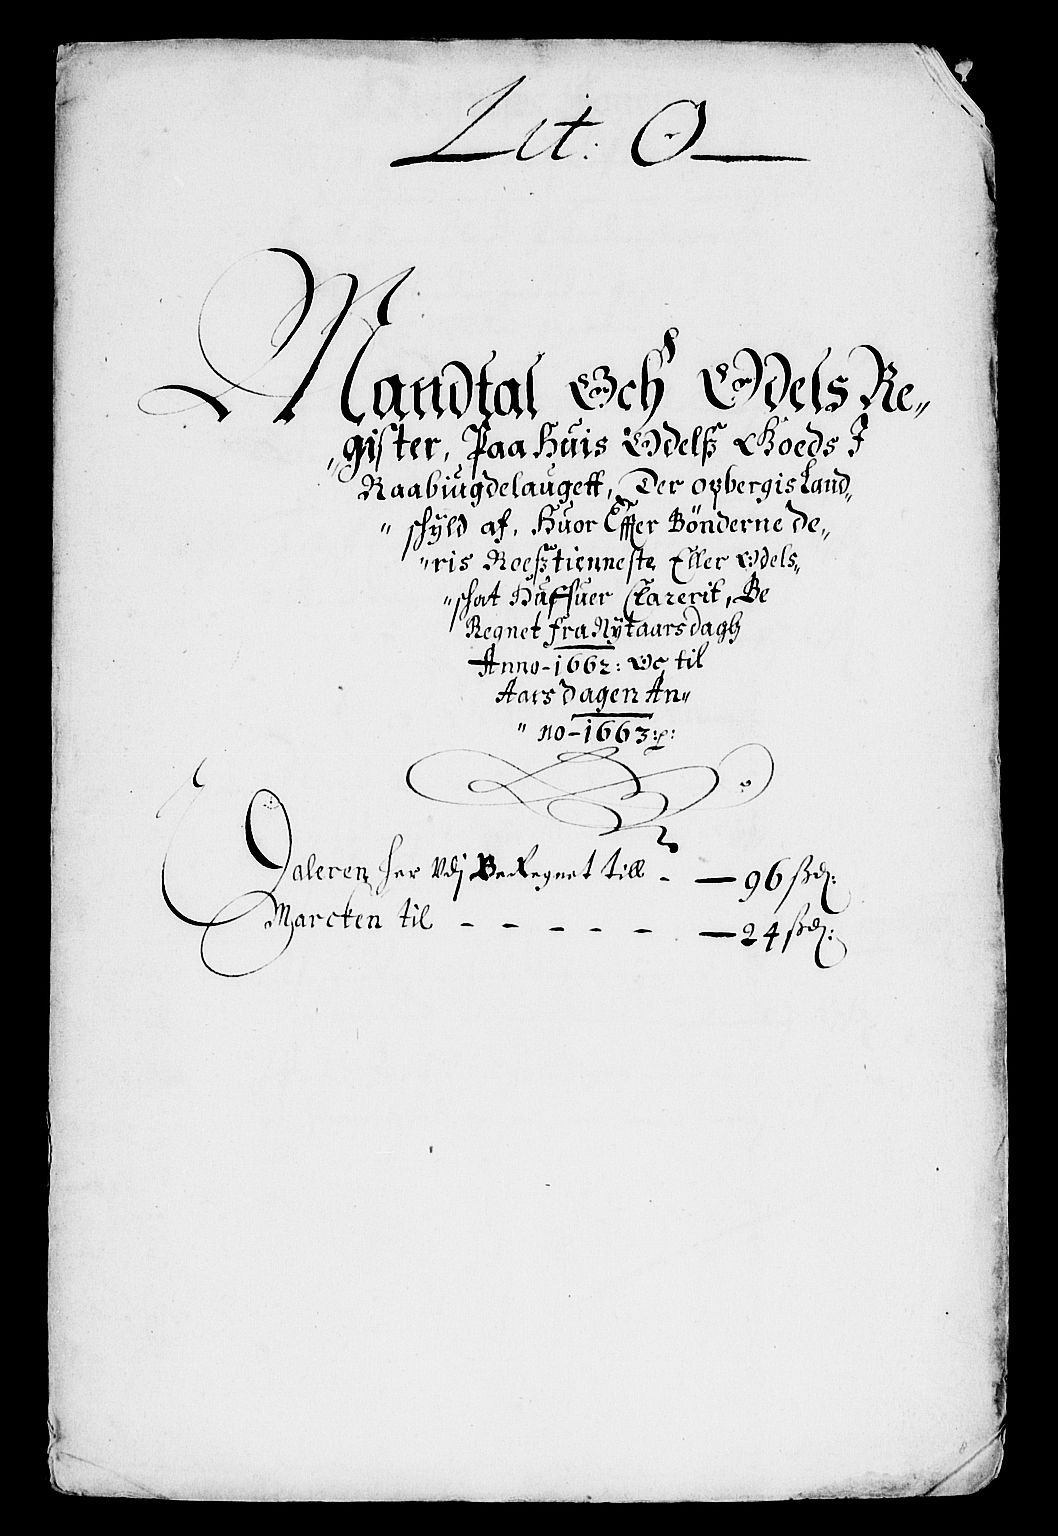 Lit: O
Mandtal Och Odels Re„
„gister, Paa Huis Odelß Goeds I
Raabiugdelaugett, Der opbergis Land„
„schyld af, Huor Effter Bønderne de„
„ris Roeßtienneste Eller Odels„
„schat Huffuer Clarerit, Be
Regnet fra Nytaarsdagh
Anno-1662: Oc til
Aarsdagen An„
„no-1663:
Daleren her Udj BeRegnet till - — 96 ßd:
Marcken til - - - - - — 24 ßd: